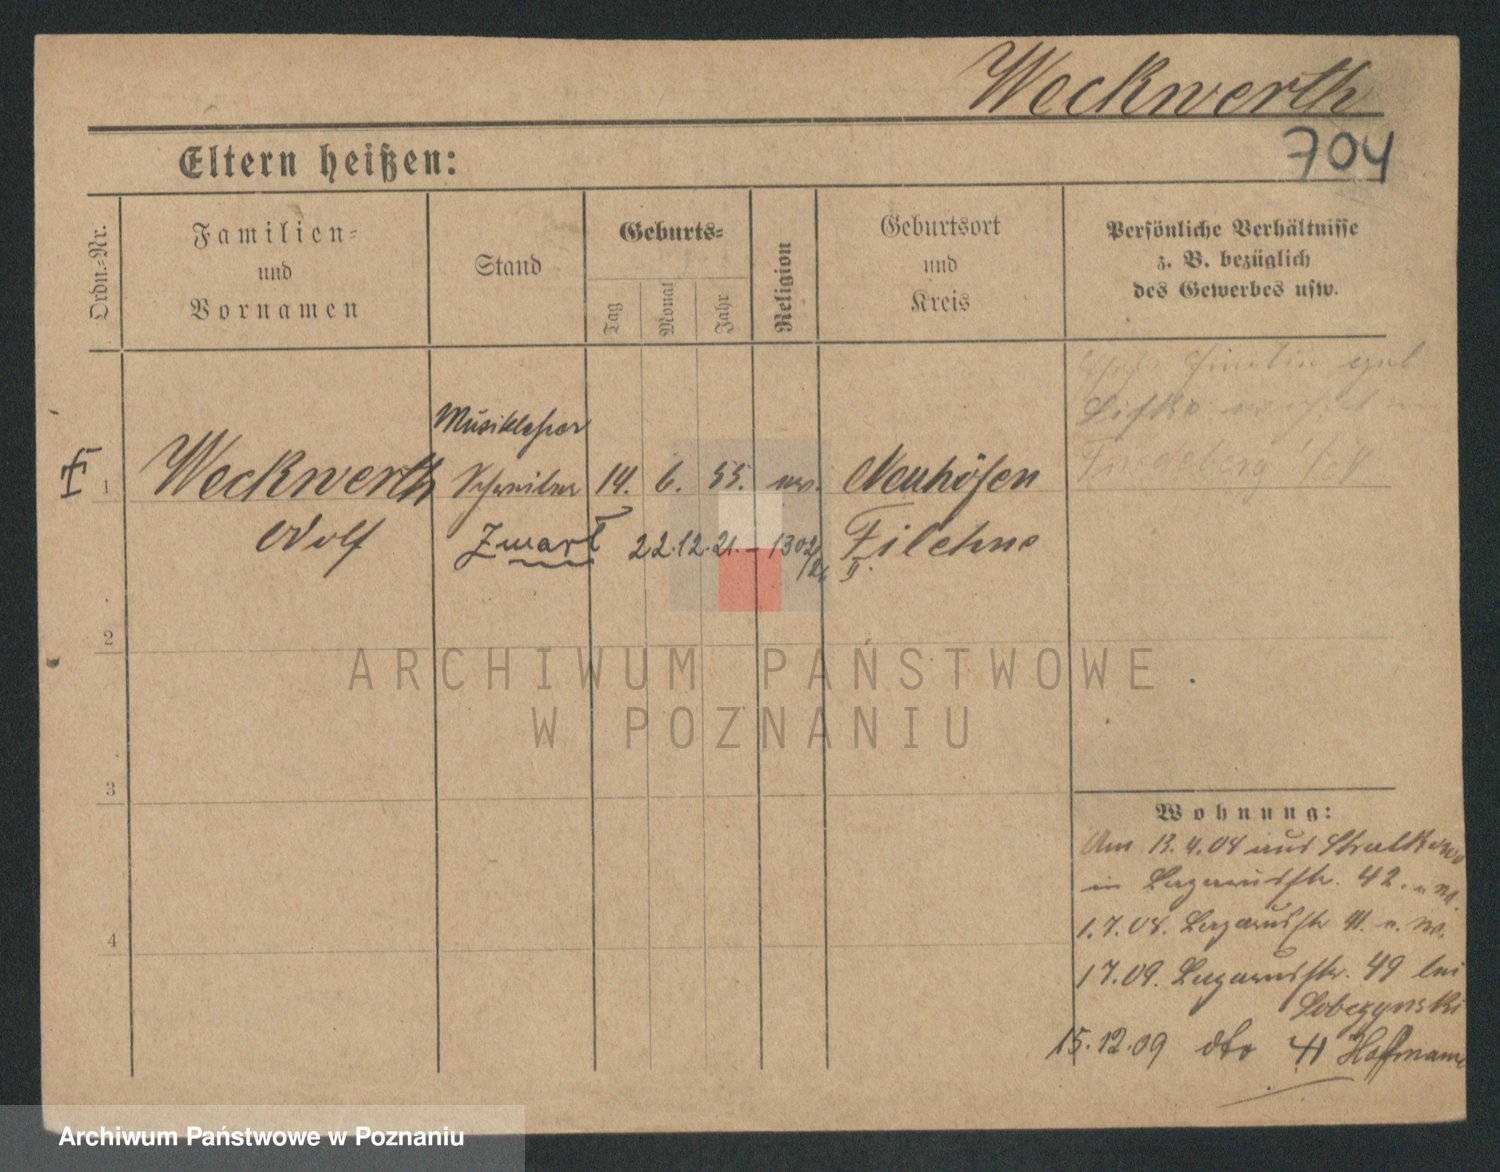 Weckwerth
704
Eltern heißen:
Ordn.-Nr.
Familien-
und
Vornamen
Stand
Geburts-
Tag
Monat
Jahr
Religion
Geburtsort
und
Kreis
Persönliche Verhältnisse
z. B. bezüglich
des Gewerbes usw.
Friedeberg
Musiklehrer
1 Weckwerth Schreiber 14. 6. 55. ev. Neuhöfen
Adolf 22.12.21. – 1302/21 Filehne
II.
2
3
4
Wohnung:
Am 13.4.08 aus Stralkowo
in Lazarusstr. 42.
1.7.08. Lazarusstr 41.
1 7.09. Lazarusstr. 49 bei
Sobczynski
15.12.09 dto 41 Hoffmann
ARCHIWUM PAŃSTWOWE
W POZNANIU
Archiwum Państwowe w Poznaniu